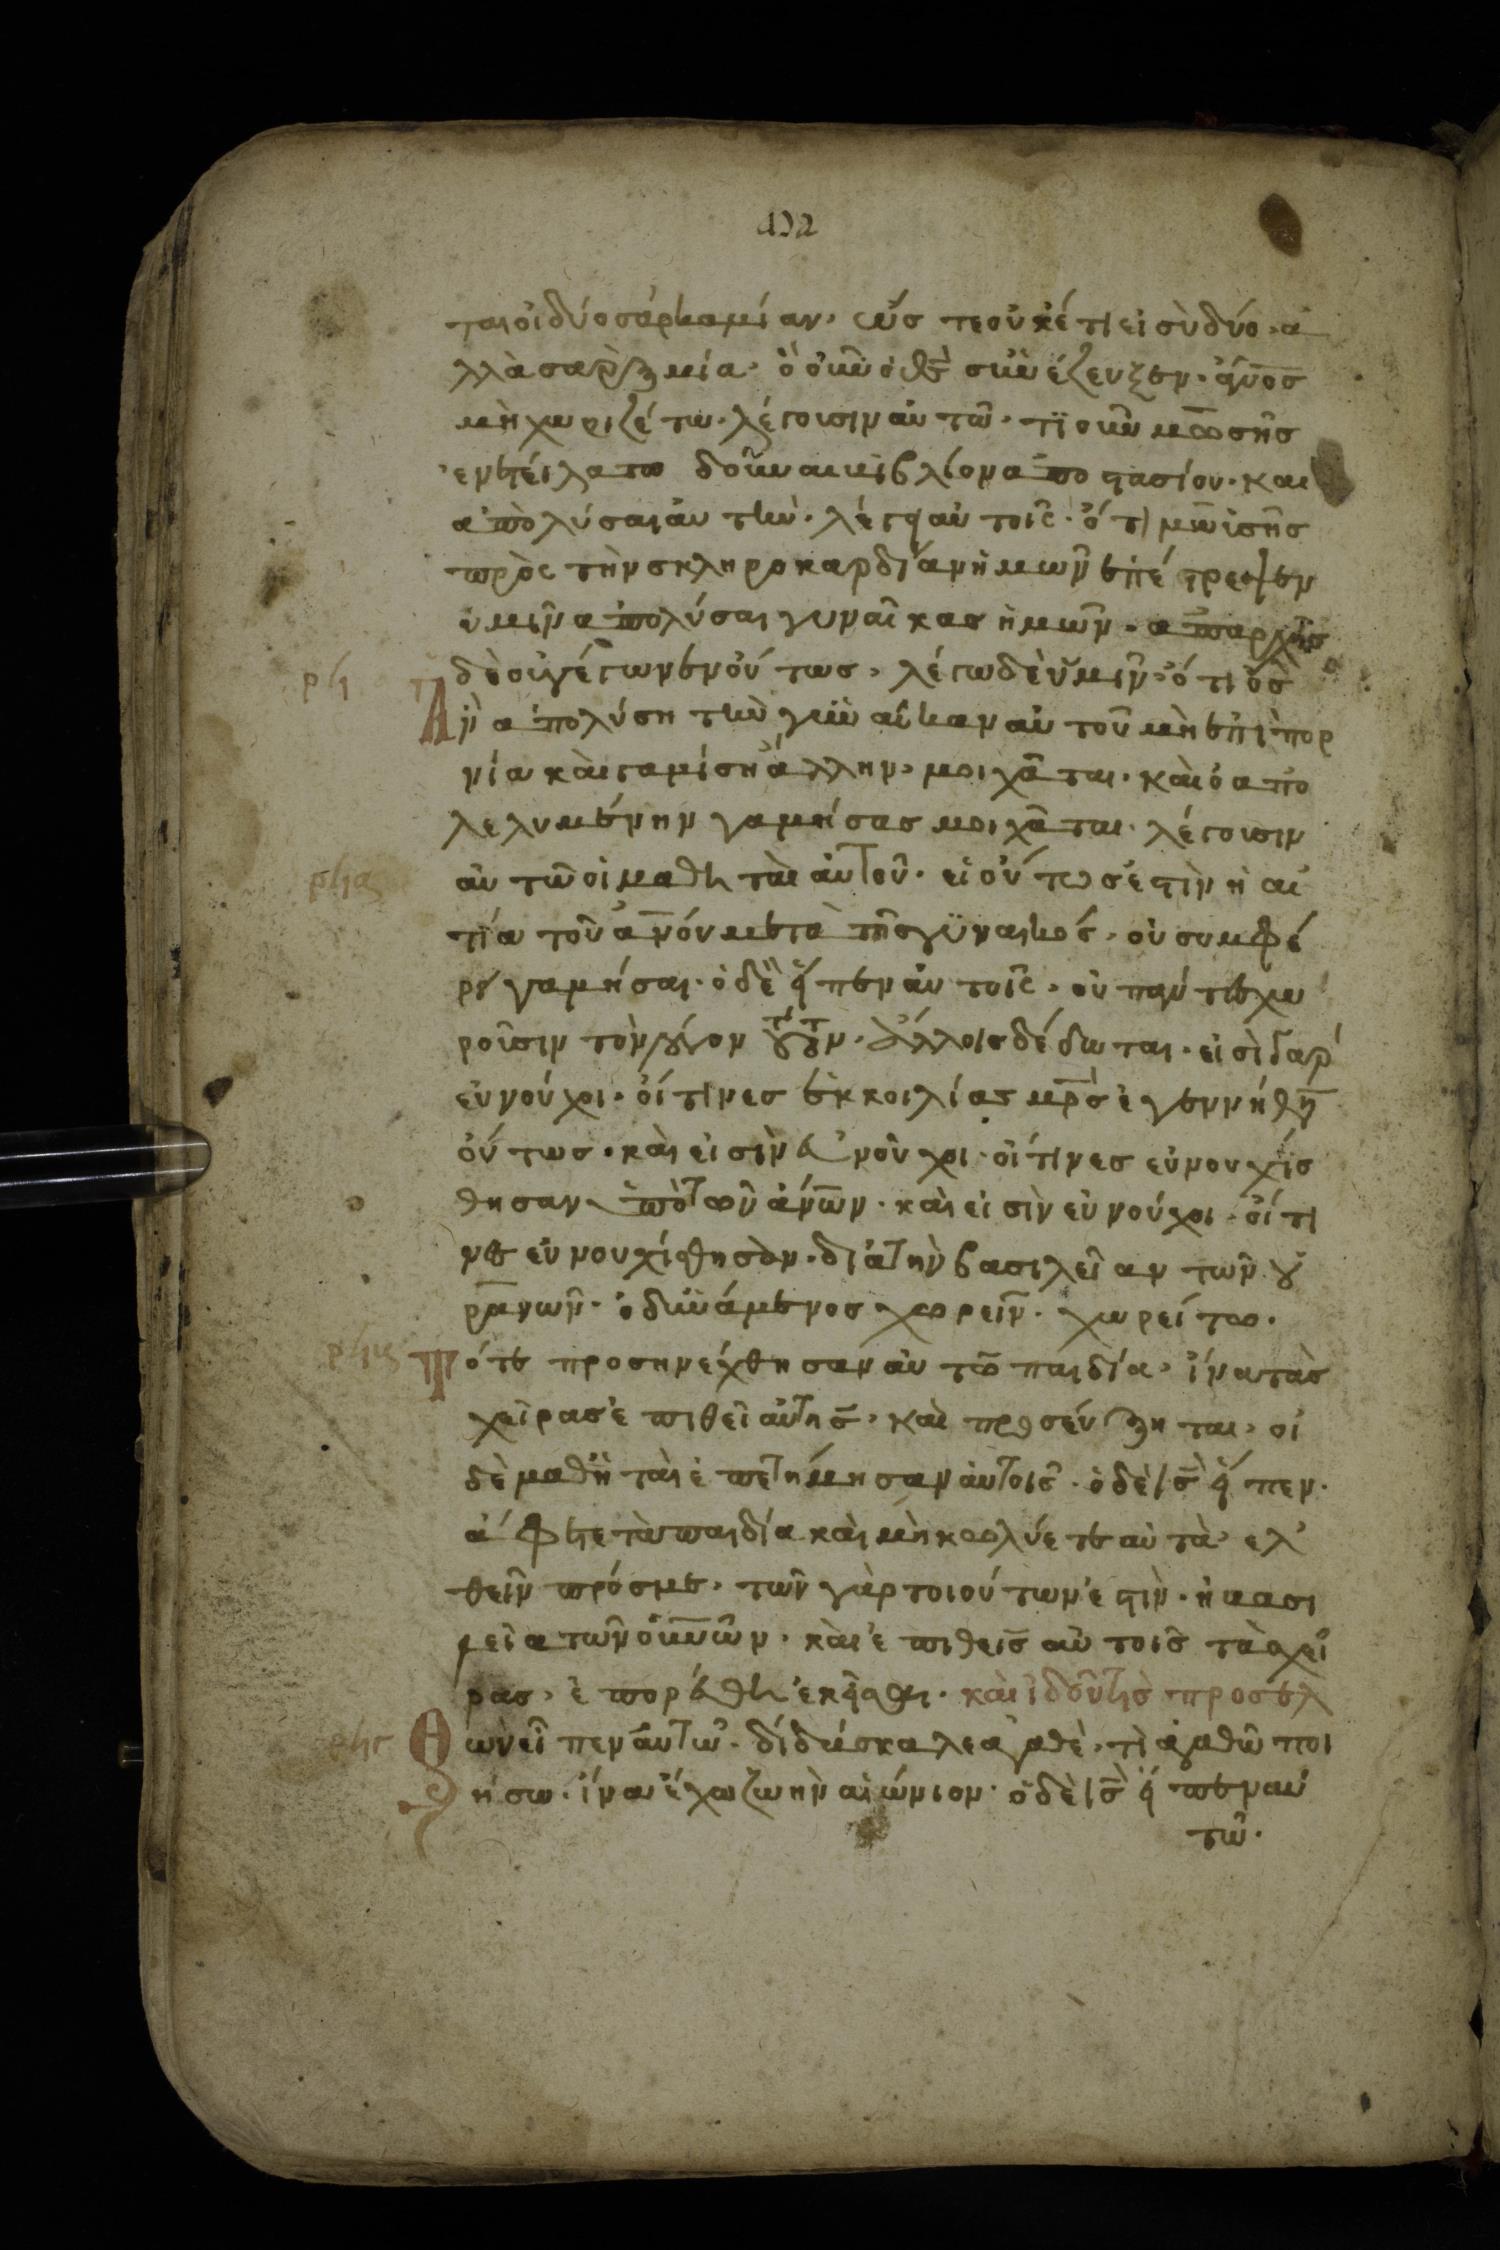 ται οἱ δύο σάρκα μίαν· ὥστε οὐκέτι εἰσὶ δύο· ἀ
λλὰ σὰρξ μία· ὃ οὖν ὁ θς συνέζευξεν· ἄνος
μὴ χωριζέτω· λέγουσιν αὐτῶ· τί οὖν μωσῆς
ἐνετείλατο δοῦναι βιβλίον ἀποστασίου· και
ἀπολύσαι αὐτήν· λέγει αὐτοῖς· ὅτι μωϊσῆς
πρὸς τὴν σκληροκαρδίαν ἡμων ἐπέτρεψεν
ὑμῖν ἀπολύσαι γυναῖκας ἡμῶν· ἀπαρχῆς
δὲ οὐ γέγωνεν οὕτως· λέγω δὲ ὑμῖν· ὅτι ὃς
ρϟ
Ἂν ἀπολύση τὴν γυναῖκαν αὐτοῦ μὴ ἐπὶ πορ
νία καὶ γαμίση ἄλλην· μοιχᾶται· καὶ ὁ ἀπο
λελυμένην γαμήσας μοιχᾶται· λέγουσιν
ρϟα
αὐτῶ οἱ μαθηταὶ αὐτοῦ· εἰ οὕτως ἐστὶν ἡ αἰ
τία τοῦ ἀνόυ μετὰ τῆς γυναικός· οὐ συμφέ
ρει γαμήσαι· ὁ δὲ εἶπεν αὐτοῖς· οὐ πάντες χω
ροῦσιν τὸν λόγον τοῦτον· ἀλλ οις δέδωται· εἰσὶ γαρ
εὐνούχοι· οἵτινες ἐκ κοιλίας μρς ἐγεννήθη
οὕτως· καὶ εἰσὶν εὐνοῦχοι· οἵτινες εὐνουχίσ
θησαν ὑπὸ τῶν ἀνων· καὶ εἰσὶν εὐνούχοι· οἵτι
νες εὐνουχίσθησαν· διὰ τὴν βασιλεῖαν τῶν οὐ
ρανων· ὁ δυνάμενος χωρεῖν· χωρείτω·
ρϟβ
Τότε προσηνέχθησαν αὐτῶ παιδία· ἵνα τὰς
χεῖρας ἐπιθεῖ αὐτης· καὶ προσεύξηται· οἱ
δὲ μαθηταὶ ἐπετήμησαν αὐτοῖς· ὁ δὲ ις εἶπεν·
ἄφετε τὰ παιδία καὶ μὴ κωλύετε αὐτὰ· ελ
θεῖν πρός με· τῶν γὰρ τοιούτων ἐστὶν· ἡ βασι
λεῖα τῶν οὐνῶν· καὶ ἐπιθεὶς αὐτοῖς τὰς χεῖ
ρας· ἐπορεύθη ἐκεῖθεν· καὶ ἰδοῦ τις προσελ
ρϟγ
Θὼν εἶπεν αὐτῶ· διδάσκαλε ἀγαθὲ· τὶ ἀγαθῶ ποι
ήσω· ἵνα ἔχω ζωὴν αἰώνιον· ὁ δὲ ις εἶπεν αὐ
τῶ·